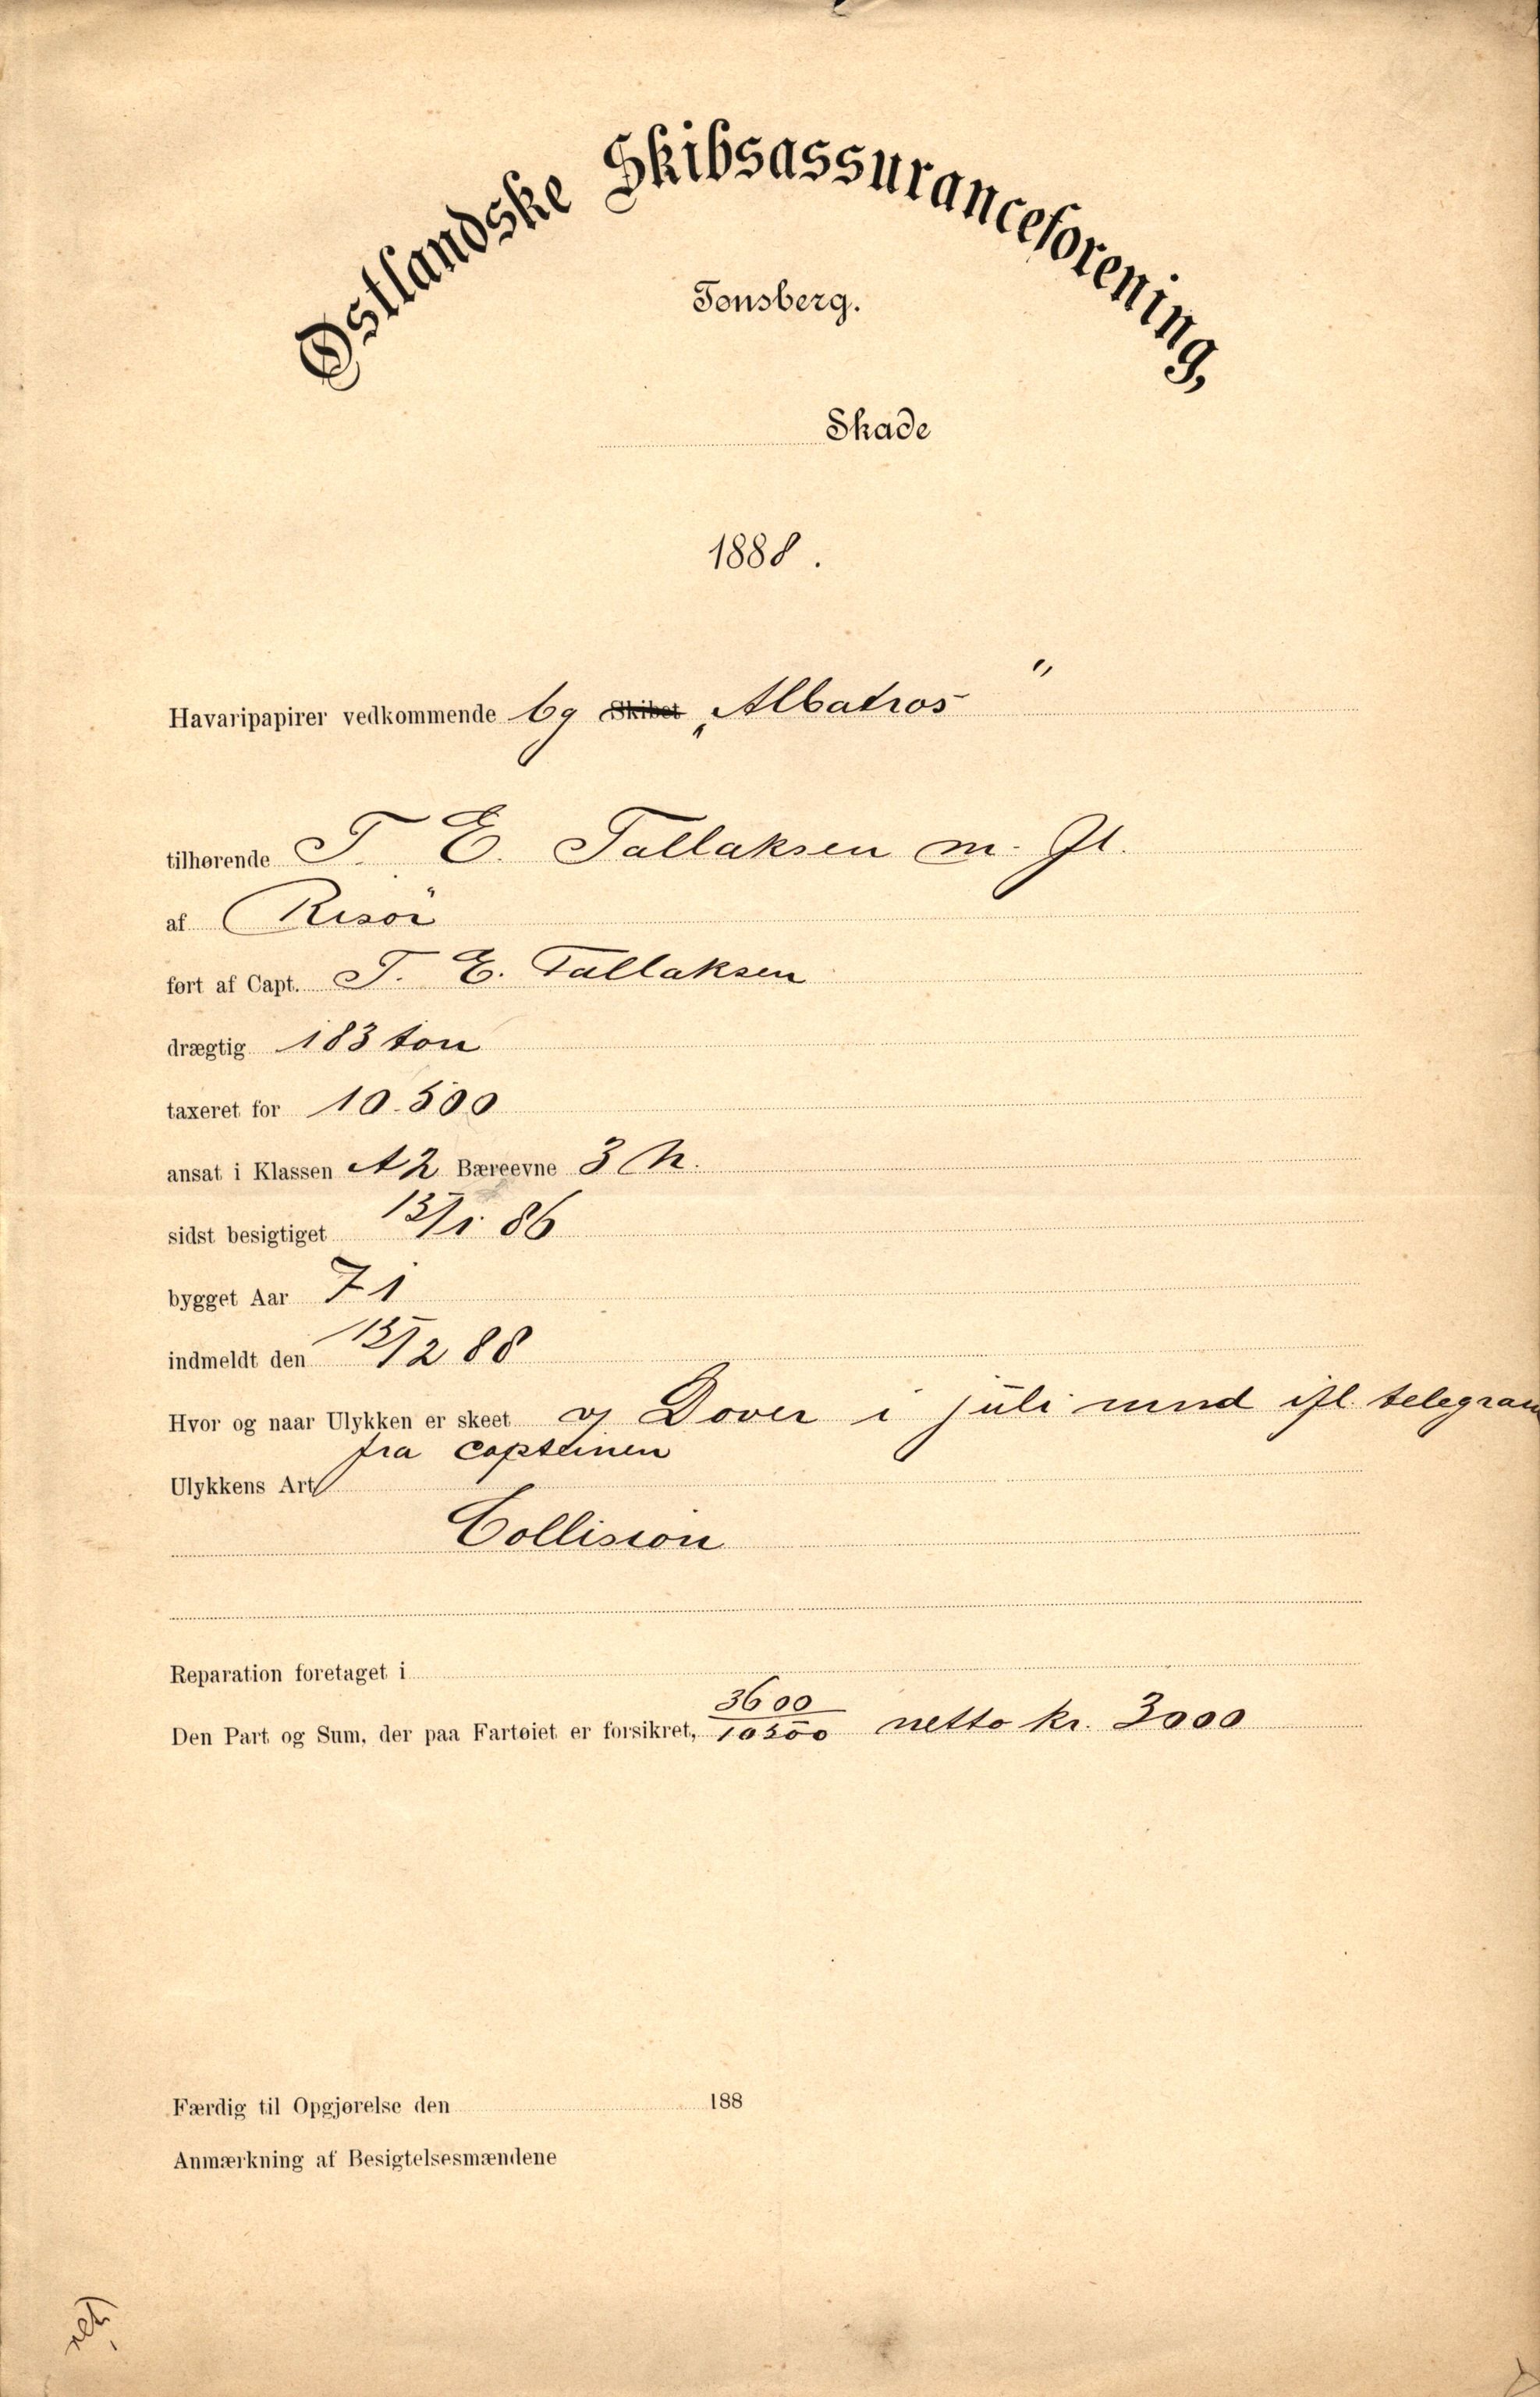 Østlandske Skibsassuranceforening,
Tønsberg.
Skade
1888.
Havaripapirer vedkommende bg Skibet „Albatros"
tilhørende T. E. Tallaksen m. Fl.
af Risör
ført af Capt. T. E. Tallaksen
drægtig 183 ton
taxeret for 10.500
ansat i Klassen A2 Bæreevne 3
sidst besigtiget 13/1 86
bygget Aar 71
indmeldt den 15/2 88
Hvor og naar Ulykken er skeet v/ Dover i juli mnd ifl. telegram
fra capteinen
Ulykkens Art
Collision
Reparation foretaget i
Den Part og Sum, der paa Fartøiet er forsikret, 3600/10500 netto kr. 3000
Færdig til Opgjørelse den 188
Anmærkning af Besigtelsesmændene